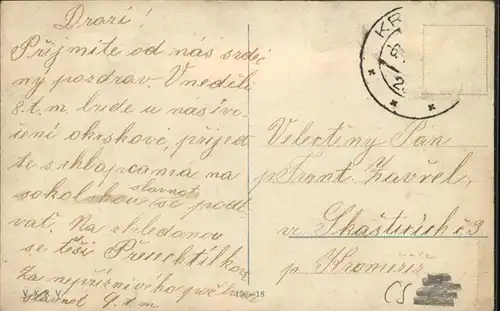 Drazí!
Přijmite od nás srdeč
ný pozdrav. V neděli
8. t. m. bude u nás cvi
čení okrskové, přijeď
te s chlapcama na
sokolskou slavnost se podí
vat. Na shledanou
se těší
Za nepříznivého počasí
slavnost 9. t. m.
KR
Velectěný Pan
p Frant. Zavřel,
ve Skašticích č 3
p. Kroměříž